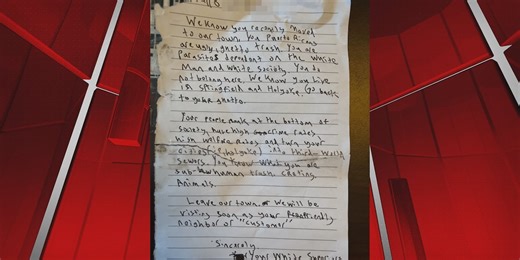 We know you recently moved
to our town. You Puerto Ricans
are ugly, ghetto trash. You are
Parasites dependent on the White
Man and White society. You do
not belong here. We know you live
in Springfield and Holyoke. Go back
to your ghetto.
Your people rank at the bottom of
society, have high crime rates
high welfare rates and turn your
cities (Holyoke) into third-world
sewers. You know what you are
sub-human trash eating
Animals.
Leave our town or We will be
visiting soon as your friendly
neighbor or "customer"
Sincerely
your White